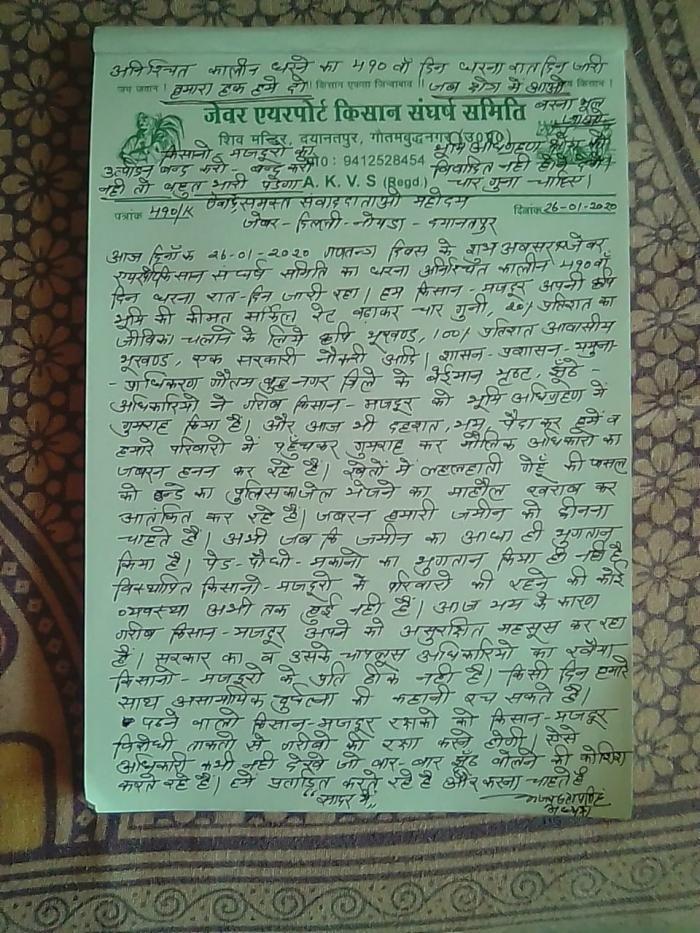 अनिश्चित कालीन धरने का 490 वाँ दिन धरना रात दिन जारी
जय जवान ! हमारा हक हमें दो ! किसान एकता जिन्दाबाद ! जब होश में आओ जय किसान !
जेवर एयरपोर्ट किसान संघर्ष समिति
बरना भूल जाओ
शिव मन्दिर, दयानतपुर, गौतमबुद्धनगर (उ0प्र0)
किसानों मजदूरों का
भूमि अधिग्रहण
उत्पीड़न बन्द करो - बन्द करो
मो0 : 9412528454
विवादित नहीं
नही तो बहुत भारी पड़ेगा A. K. V. S (Regd.) चार गुना चाहिए।
पत्रांक 490/K समस्त संवाददाताओ महोदय दिनांक 26-01-2020
जेवर - दिल्ली - नोयडा - दयानतपुर
आज दिनाँक 26-01-2020 गणतन्त्र दिवस के शुभ अवसर पर जेवर
एयरपोर्ट किसान संघर्ष समिति का धरना अनिश्चित कालीन 490वाँ
दिन धरना रात-दिन जारी रहा। हम किसान - मजदूर अपनी कृषि
भूमि की कीमत सर्किल रेट बढाकर चार गुनी, 20% प्रतिशत का
जीविका चलाने के लिये कृषि भूखण्ड, 100% प्रतिशत आवासीय
भूखण्ड, एक सरकारी नौकरी आदि। शासन - प्रशासन - यमुना-
- प्राधिकरण गौतम बुद्ध नगर जिले के बेईमान भृष्ट, झूंठे -
अधिकारियो ने गरीब किसान - मजदूर को भूमि अधिग्रहण में
गुमराह किया है। और आज भी दहशत, भय, पैदा कर हमें व
हमारे परिवारो में पहुँचकर गुमराह कर मौलिक अधिकारो का
जबरन हनन कर रहे हैं। खेतों में लहलहाती गेहूँ की फसल
को डन्डे का पुलिस का जेल भेजने का माहौल खराब कर
आतंकित कर रहे हैं। जबरन हमारी जमीन को छीनना
चाहते हैं। अभी जब कि जमीन का आधा ही भुगतान
किया है। पेड - पौधो - मकानो का भुगतान किया ही नहीं है
विस्थापित किसानो - मजदूरो के परिवारो की रहने की कोई
व्यवस्था अभी तक हुई नही हैं। आज भय के कारण
गरीब किसान - मजदूर अपने को असुरक्षित महसूस कर रहा
हैं। सरकार का व उसके चापलूस अधिकारियो का रवैया
किसानो - मजदूरो के प्रति ठीक नही है। किसी दिन हमारे
साथ असामायिक दुर्घटना की कहानी रच सकते हैं।
पढने वालो किसान-मजदूर रक्षको को किसान-मजदूर
विरोधी ताकतो से गरीबो की रक्षा करनी होगी। ऐसे
अधिकारी कभी नही देखे जो बार-बार झूँठ बोलने की कोशिश
करते रहे हैं। हमें प्रताडित करते रहे है और करना चाहते है
सादर में,,